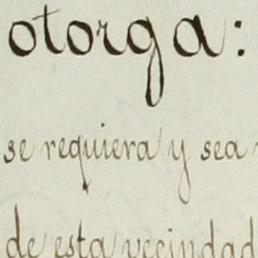 otorga:
se requiera y sea
de esta vecindad